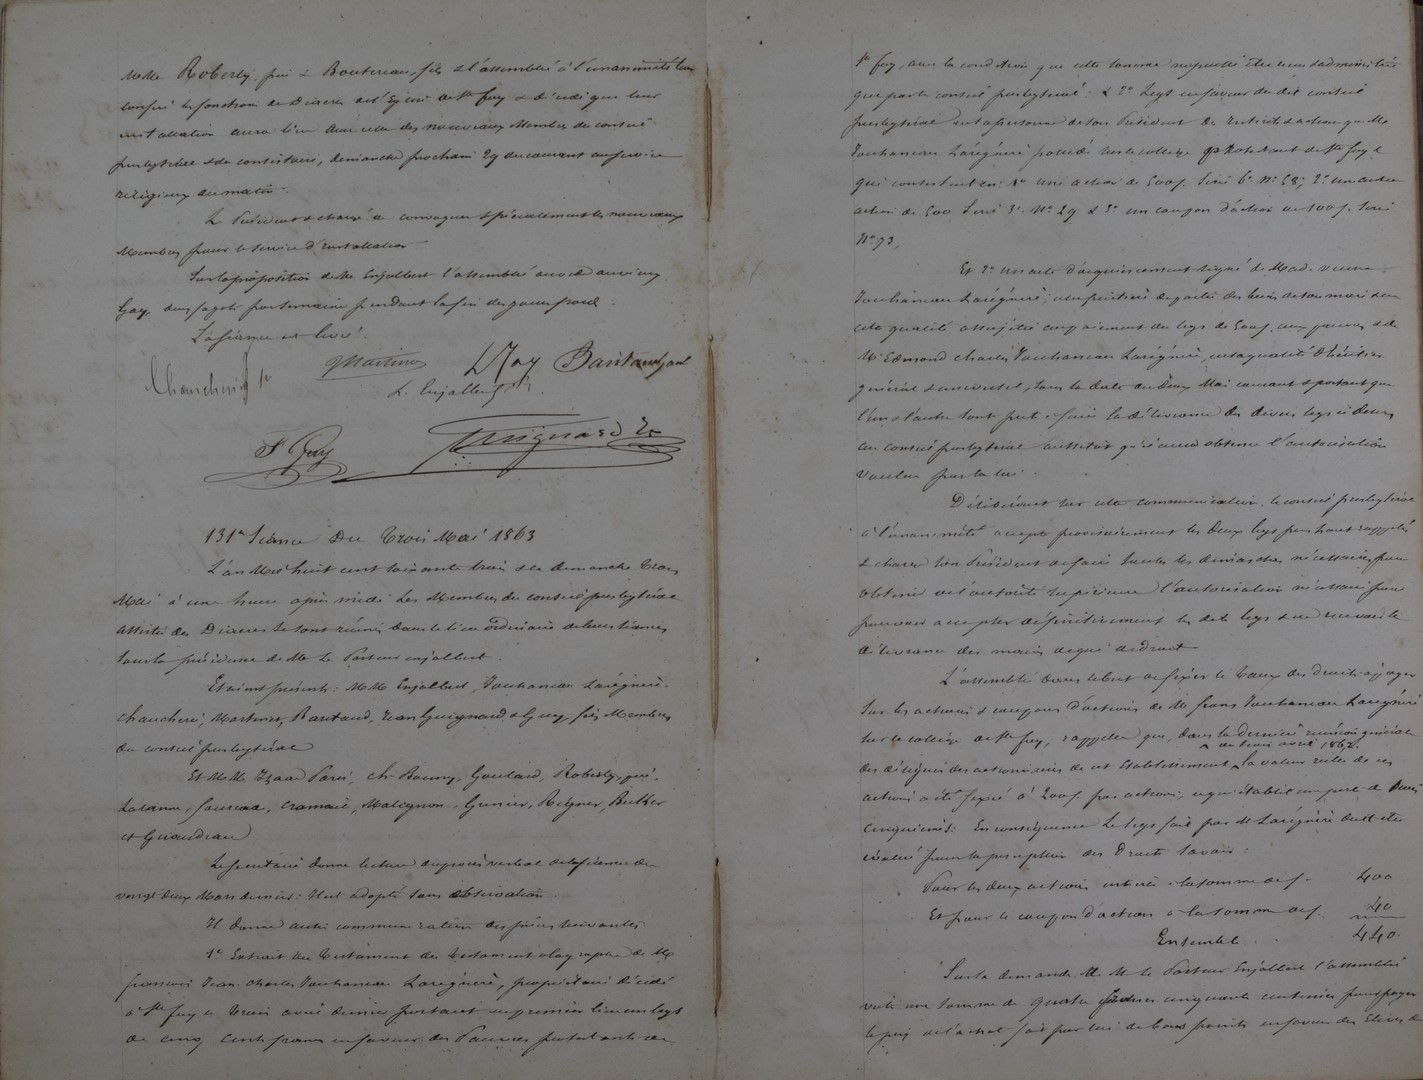 MMrs Roberty, père & Boutereau, fils & l'assemblée à l'unanimité leur
confie les fonctions de Diacres de l'Eglise de Ste foy & décide que leur
installation aura lieu avec celle des nouveaux Membres du conseil
presbytéral & du consistoire, dimanche prochain 29 du courant au service
religieux du matin.
Le Président est chargé de convoquer spécialement les nouveaux
Membres pour le service d'installation
Sur la proposition de Mr Enjalbert l'assemblée accorde au vieux
Gay, deux fagots par semaine pendant la fin des jours froids.
La séance est levée.
Martines
Bautaud
L. Enjalbert
Chauchené
Guignard
131e Séance Du Trois Mai 1863
L'an Mil huit cent soixante trois & le dimanche Trois
Mai à une heure après midi Les Membres du conseil presbytéral
assistés des Diacres se sont réunis dans le lieu ordinaire de leurs séances
sous la présidence de Mr Le Pasteur Enjalbert.
Etaient présents: MM Enjalbert, Jouhaneau Larégnère,
chauchené, Martines, Bautaud, Jean Guignard & Guy, fils, Membres
du conseil presbytéral
Et MM Isaac Paris, ch. Goulard, Roberty, père,
Lalanne, Grenier, Reigner,
et Guiraudeau
Le secrétaire donne lecture du procès verbal de la séance du
vingt deux Mars dernier. Il est adopté sans observation.
Il donne aussi communication des pièces suivantes
1° Extrait du Testament du Testament olographe de Mr
françois Jean Charles Jouhaneau Larégnère, propriétaire décédé
à Ste foy le Trois avril dernier portant en premier lieu un legs
de cinq cents francs en faveur des Pauvres protestants de
Ste foy, avec la condition que cette somme ne puisse être administrée
que par le conseil presbytéral; & 2° Legs en faveur du dit conseil
presbytéral en la personne de son Président des Intérêts & actions que Mr
Jouhaneau Larégnère possède sur le collège Protestant de Ste foy &
qui consistent en: 1° une action de 500f. Série 6e No 58; 2° une autre
action de 500 Série 3e No 29 & 3° un coupon d'action de 100f. Série
No 93,
Et 2° un acte d'acquiescement signé de Mad. veuve
Jouhaneau Larégnère, usufruitière de partie des biens de son mari & en
cette qualité assujétie au paiement du legs de 500f. aux pauvres & de
Mr Edmond Charles Jouhaneau Larégnère, en sa qualité d'héritier
général & universel, sous la date du deux Mai courant & portant que
l'un & l'autre sont prêts à faire la délivrance des divers legs ci dessus
au conseil presbytéral aussitôt qu'il aura obtenu l'autorisation
voulue par la loi.
Délibérant sur cette communication, le conseil presbytéral
à l'unanimité accepte provisoirement les deux legs plus haut rappelés
& charge son Président de faire toutes les démarches nécessaires pour
obtenir de l'autorité supérieure l'autorisation nécessaire pour
pouvoir accepter définitivement les dits legs & en recevoir la
délivrance des mains de qui de droit
L'assemblée dans le but de fixer le Taux des droits à payer
sur les actions & coupons d'actions de Mr frans Jouhaneau Larégnère
sur le collège de Ste foy, rappelle que, dans la dernière réunion générale
du trois avril 1862.
des délégués des actionnaires de cet établissement, la valeur réelle de ces
actions a été fixée à 200f. par action, ce qui établit une perte de trois
cinquièmes. En conséquence Le legs fait par Mr Larégnère doit être
évalué pour la perception des Droits savoir:
Pour les deux actions entières à la somme de f. 400
Et pour le coupon d'actions à la somme de f. 40
Ensemble . . 440.
Sur la demande de Mr le Pasteur Enjalbert l'assemblée
vote une somme de quatre francs cinquante centimes pour payer
le prix de l'achat fait par lui de bons points en faveur des Elèves de